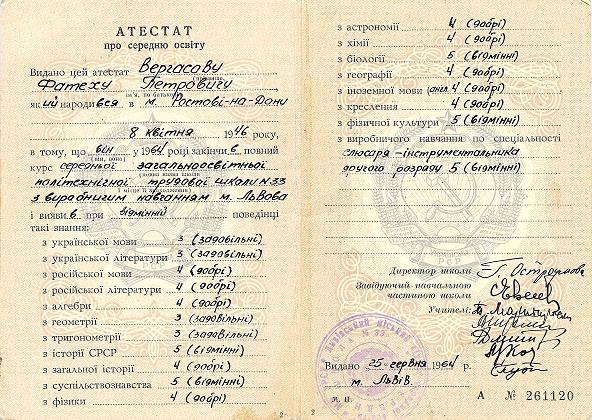 АТЕСТАТ
про середню освіту
Видано цей атестат Вергасову
(прізвище,
Фатеху Петровичу
ім'я, по батькові)
який народився в м. Ростові-на-Дону
8 квітня 1946 року,
в тому, що він у 1964 році закінчив повний
(він, вона)
курс середньої загальноосвітньої
(повна назва школи
політехнічної трудової школи N 33
і місце її знаходження)
з виробничим навчанням м. Львова
і виявив при відмінній поведінці
такі знання:
з української мови 3 (задовільні)
з української літератури 3 (задовільні)
з російської мови 4 (добрі)
з російської літератури 4 (добрі)
з алгебри 4 (добрі)
з геометрії 3 (задовільні)
з тригонометрії 3 (задовільні)
з історії СРСР 5 (відмінні)
з загальної історії 4 (добрі)
з суспільствознавства 5 (відмінні)
з фізики 4 (добрі)
2
з астрономії 4 (добрі)
з хімії 4 (добрі)
з біології 5 (відмінні)
з географії 4 (добрі)
з іноземної мови (англ. 4 (добрі)
з креслення 4 (добрі)
з фізичної культури 5 (відмінні)
з виробничого навчання по спеціальності
слюсаря-інструментальника
другого розряду 5 (відмінні)
Директор школи
Завідуючий навчальною
частиною школи
Учителі:
Видано 25 червня 1964 р.
м. Львів.
м. п.
А № 261120
2